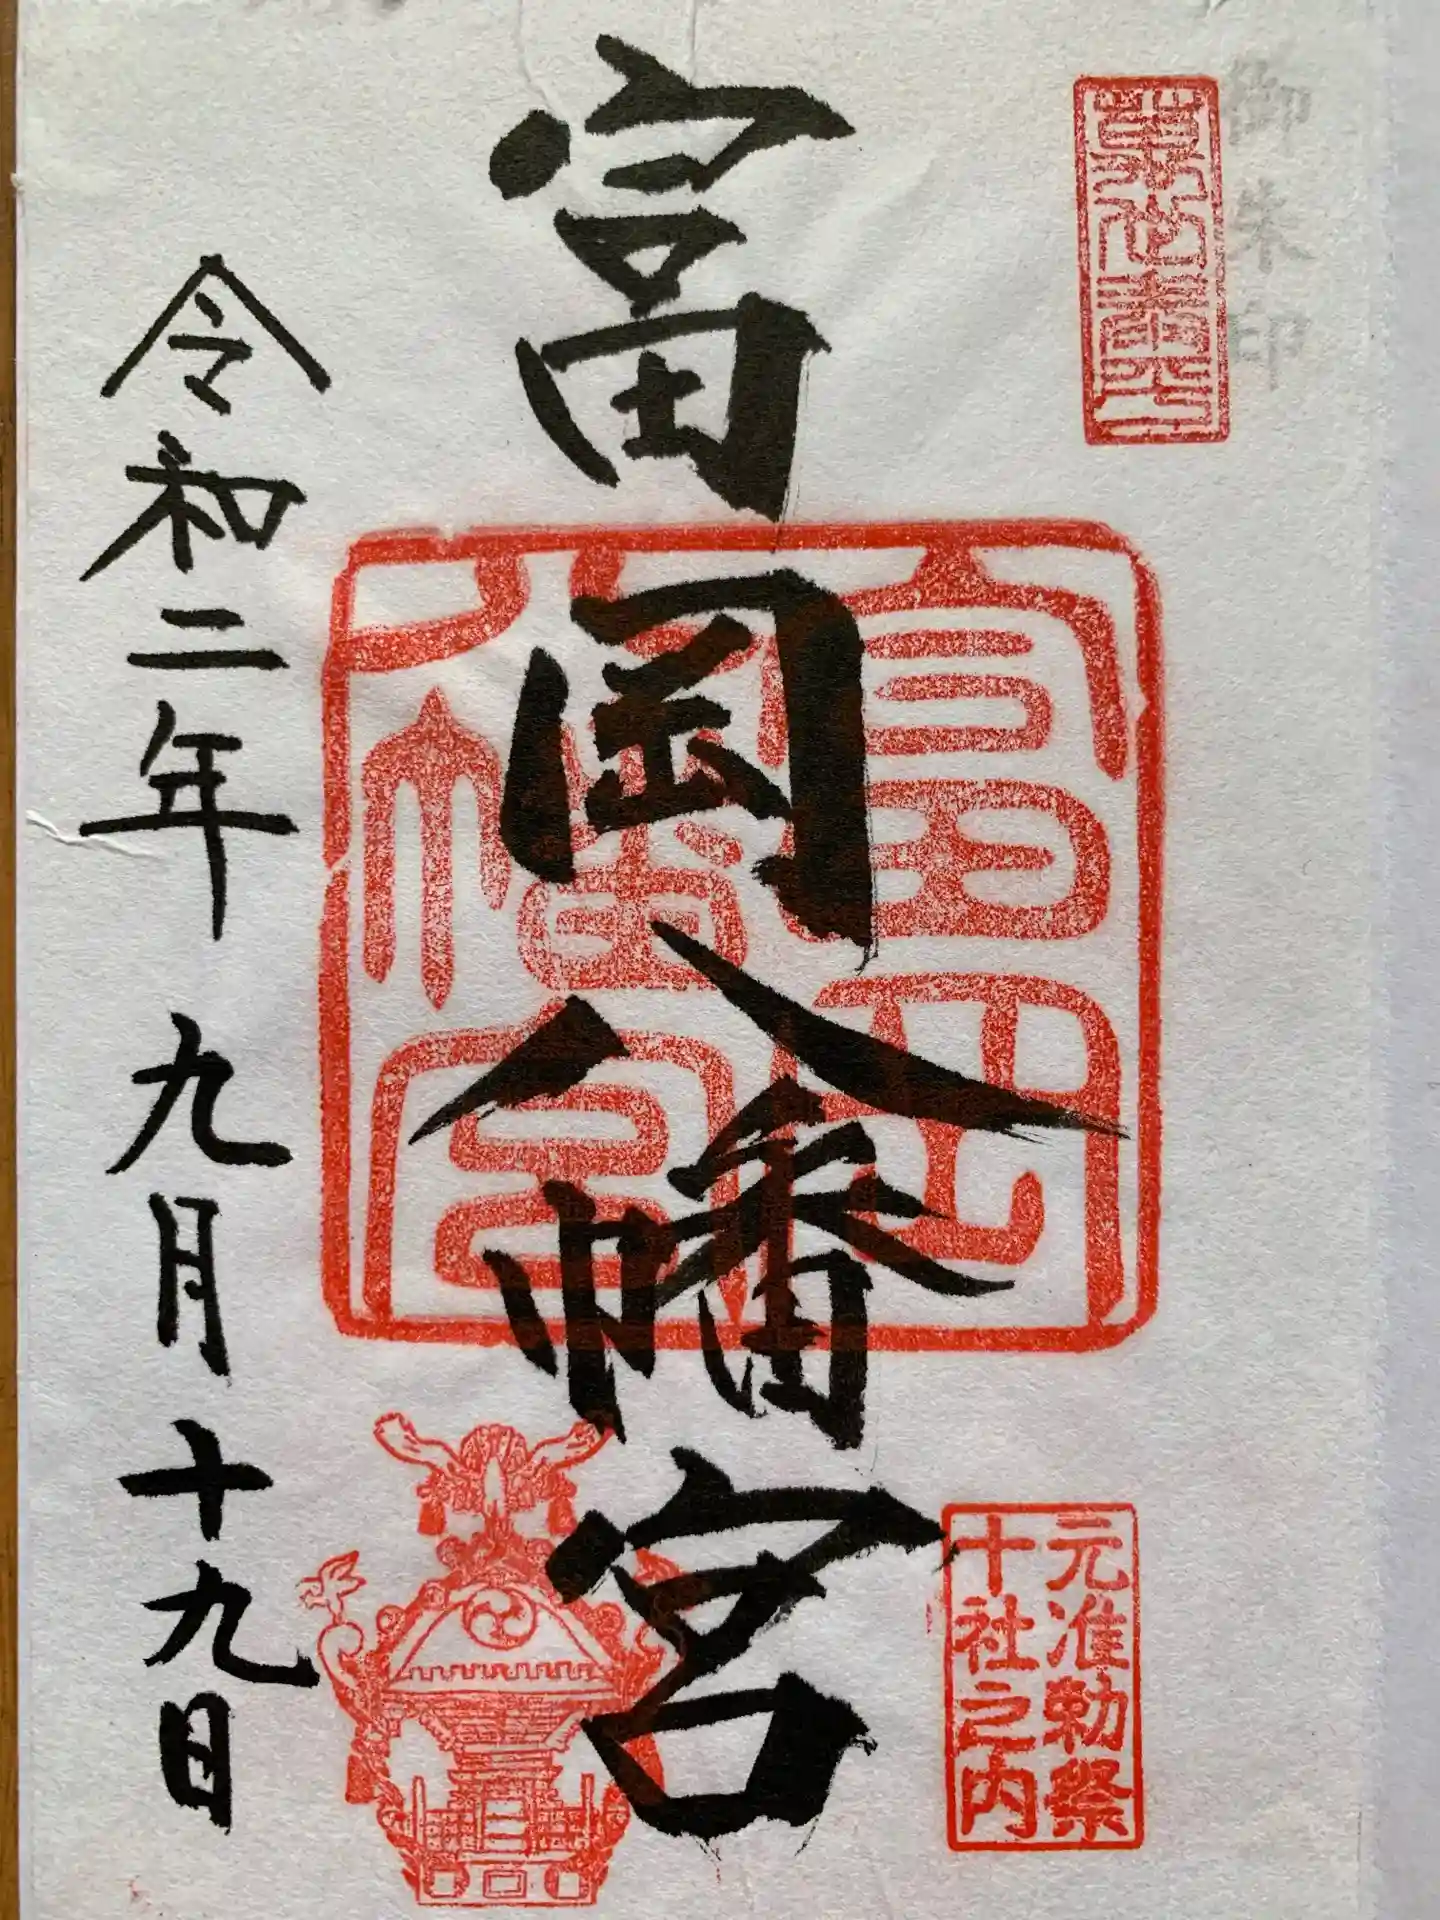 御朱印
富岡八幡宮
富岡
八幡宮
元准勅祭
十社之内
令和二年九月十九日